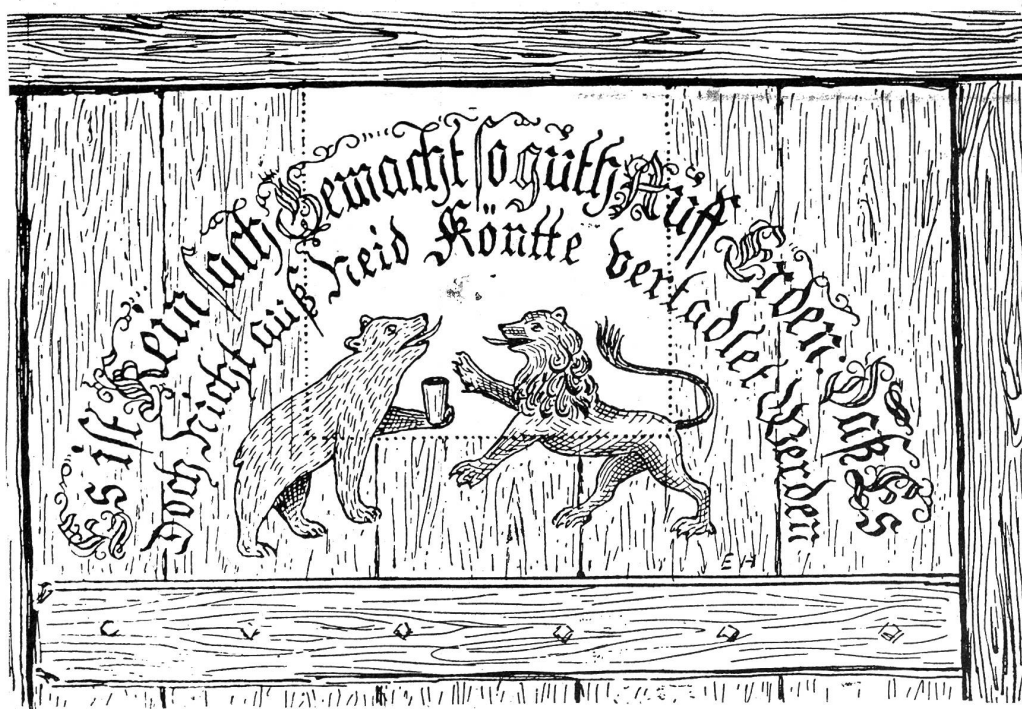 Es ist Kein sach Gemacht so gúth Aúff Erden. Daß Es
Doch Nicht aúß Neid Köntte vertadlet Werden
E H